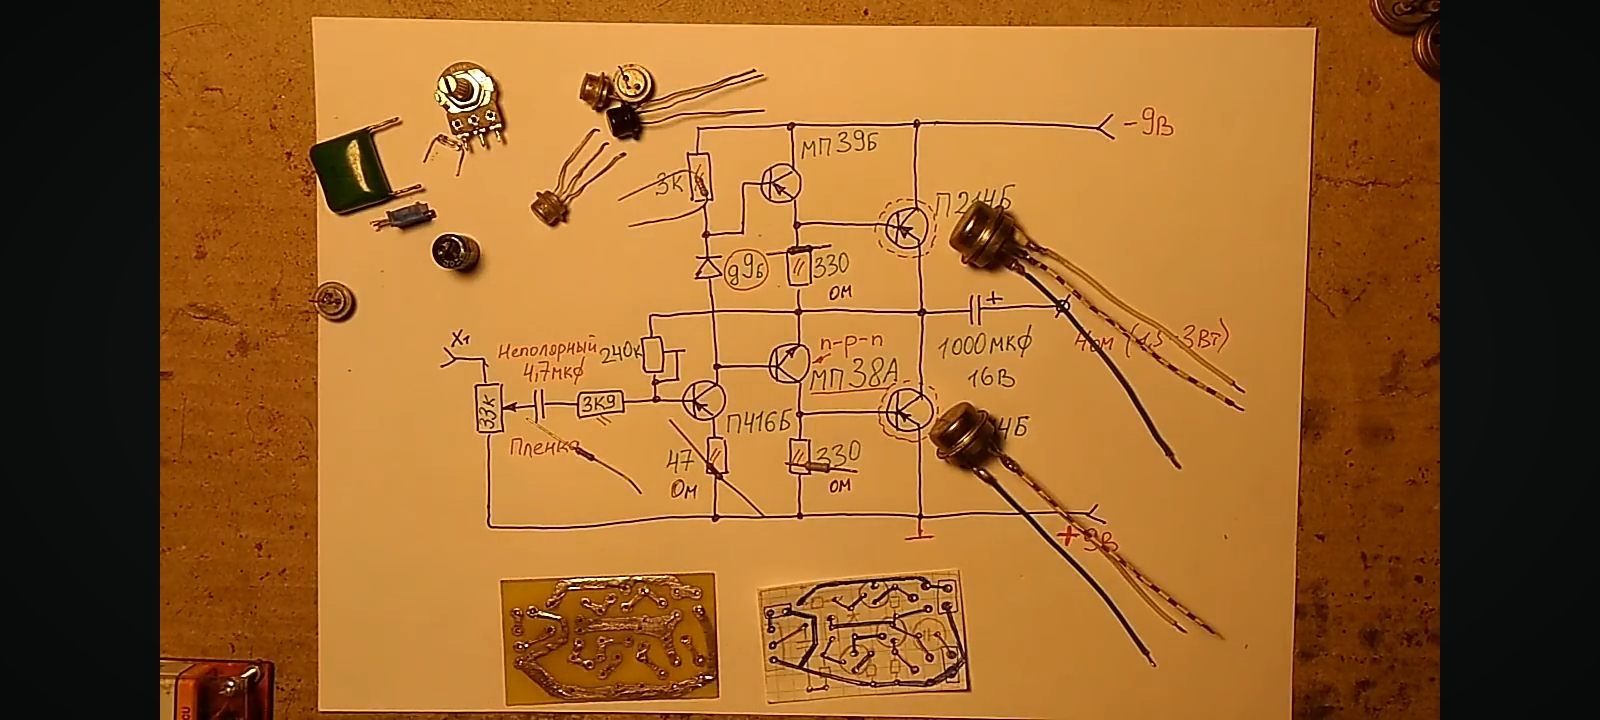 -9В
МП39Б
3к
П214Б
д9Б
330
ом
X1
Неполярный
4,7мкф
240к
n-p-n
МП38А
1000мкф
16В
4ом (1,5-3Вт)
33к
3к9
П416Б
4Б
Пленка
47
Ом
330
ом
+9В